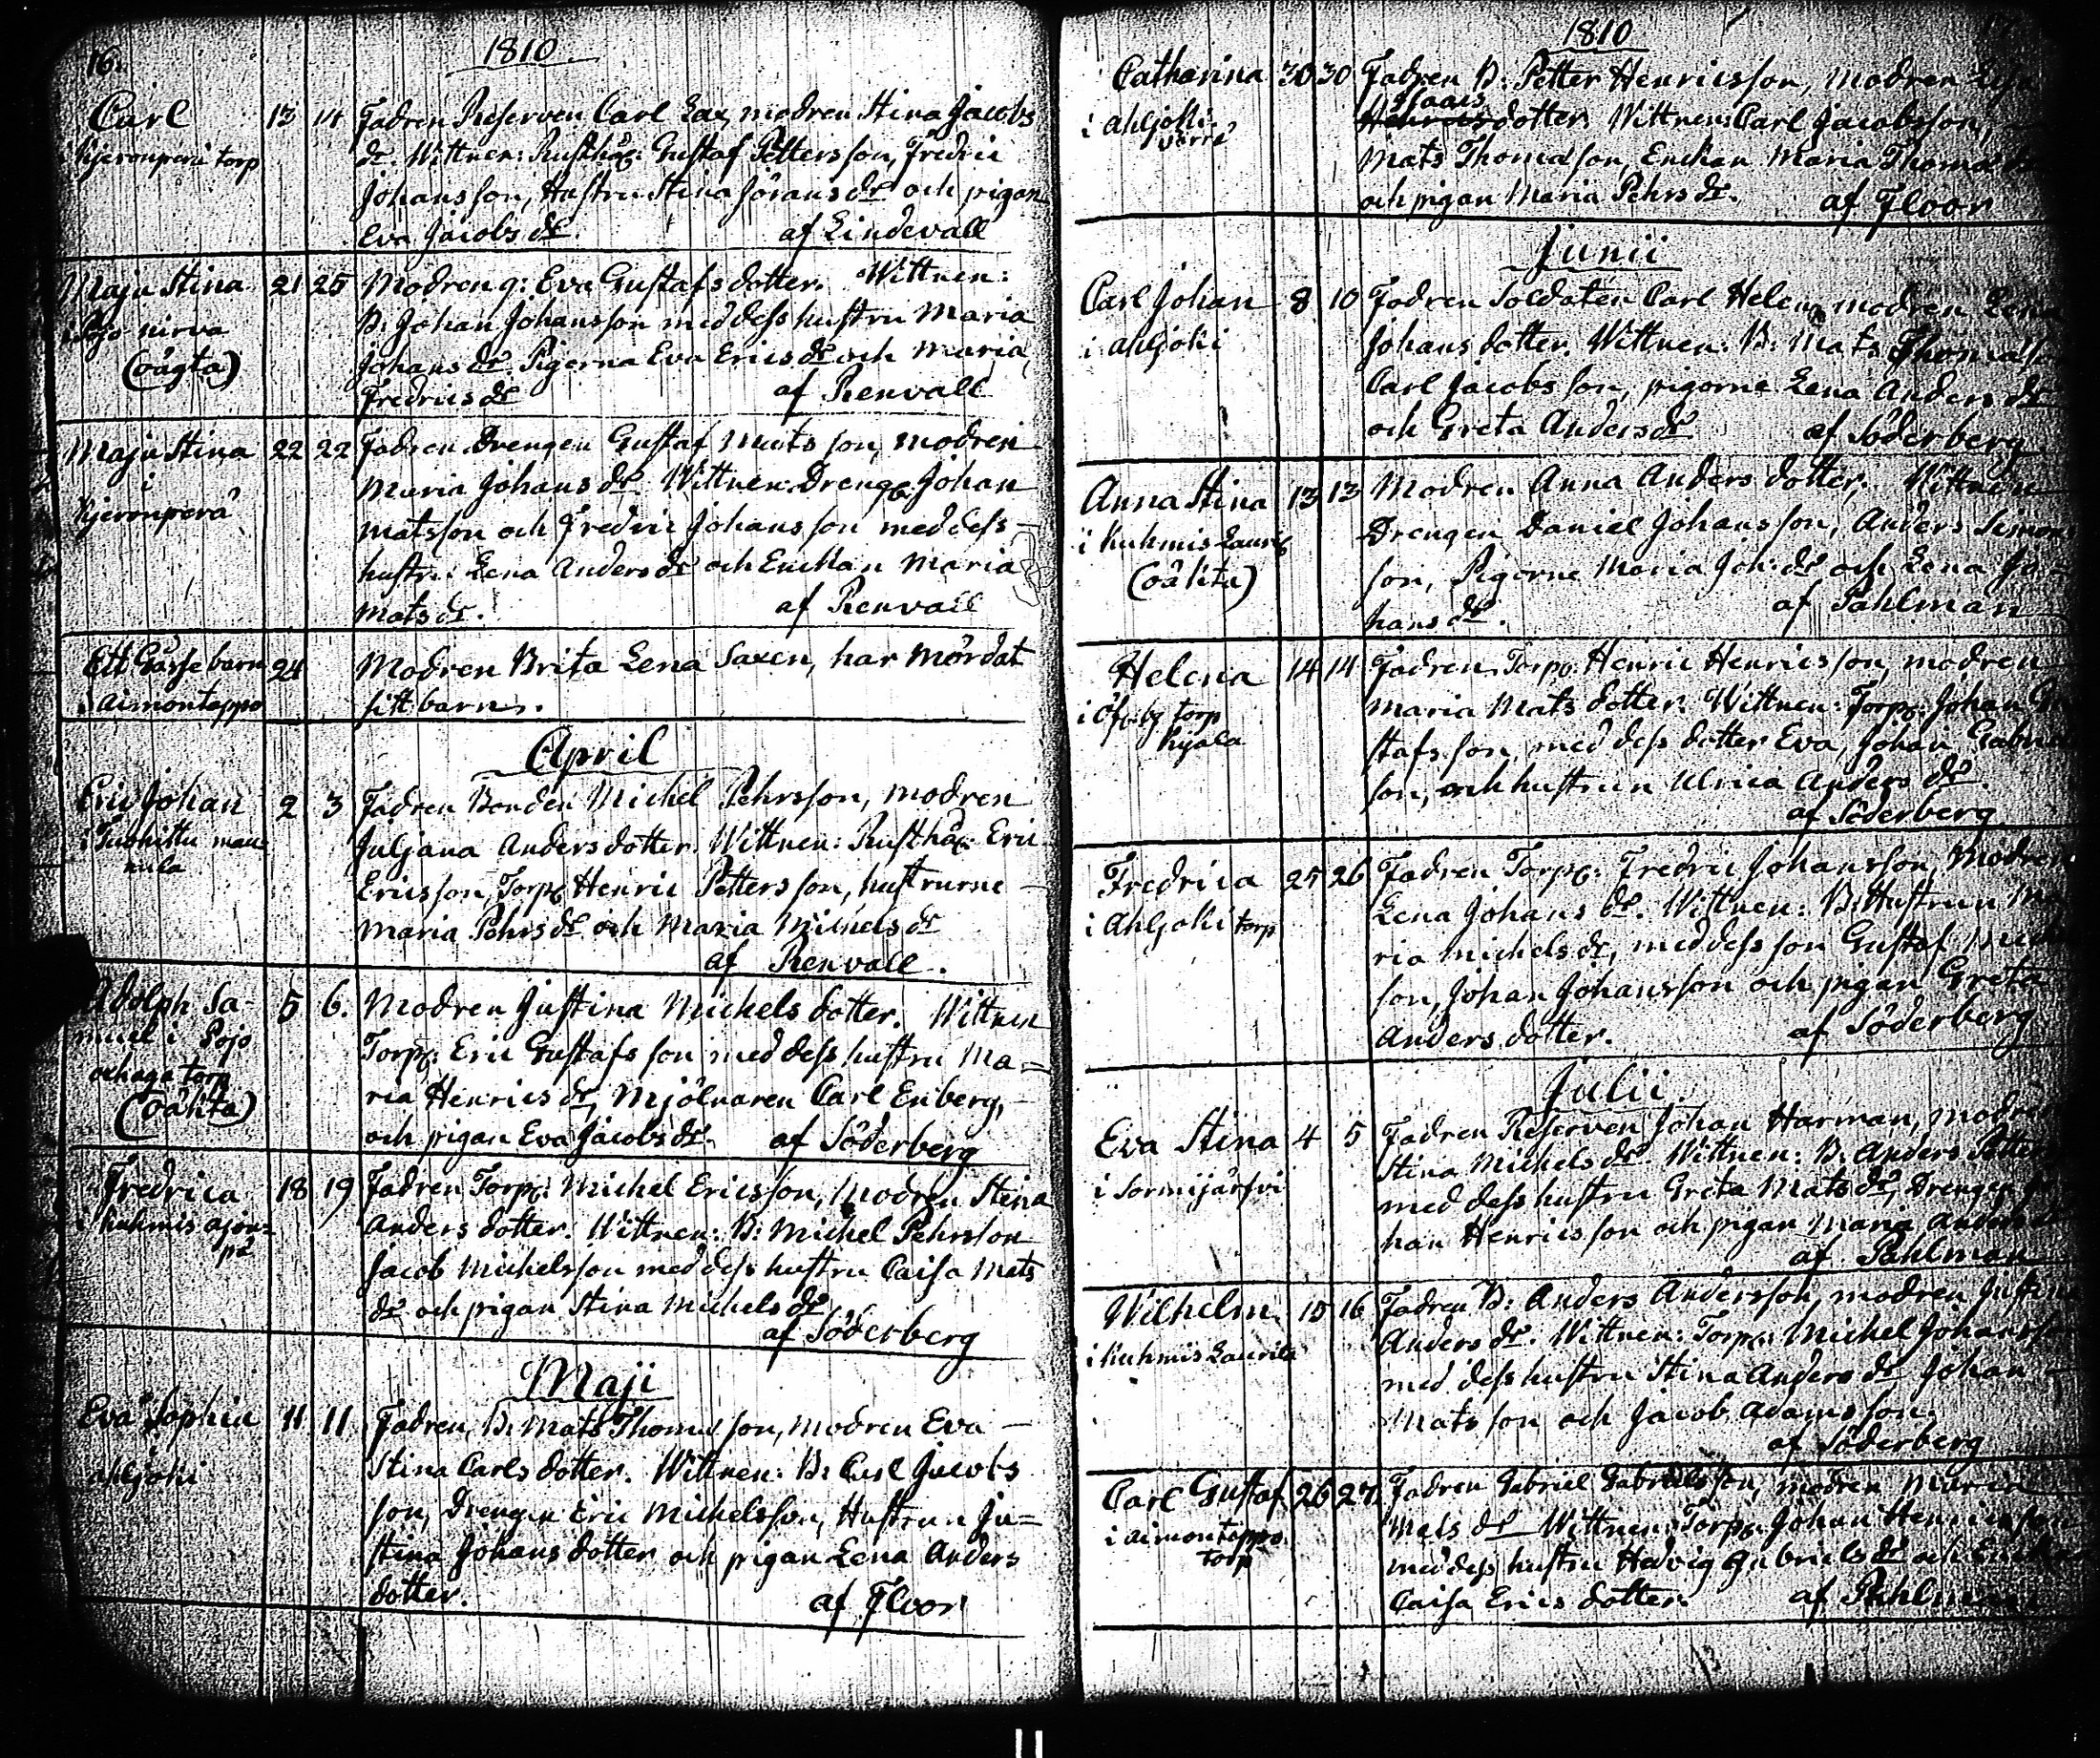 16.
1810
Carl 13 14 Fadren Reserven Carl Lax modren Stina Jacobs
i Kjeronperä torp dr. Wittnen: Rusthåĺ: Gustaf Pettersson, Fredric
Johansson, Hustru Stina Jörans dr och pigan
Eva Jacobs dr. af Lindevall
Maja Stina 21 25 Modren q: Eva Gustafsdotter. Wittnen:
i Sojo nirva B: Johan Johansson med dess hustru Maria
(oägta) Johans dr. Pigorna Eva Erics dr och Maria
Fredrics dr af Renvall
Maja Stina 22 22 Fadren Drengen Gustaf Mats son, modren
i Maria Johans dr. Wittnen: Dreng: Johan
Kjeronperä Matsson och Fredric Johansson med dess
hustru Lena Anders dr och Enckan Maria
Mats dr. af Renvall
Ett Gåsse barn 24 Modren Brita Lena Saxen, har mördat
i aimontappo sitt barn.
April
Eric Johan 2 3 Fadren Bonden Michel Pehrsson, modren
Juljana Anders dotter. Wittnen: Rusthå: Eric
Ericsson, Torp: Henric Pettersson, hustrurne
Maria Pehrs dr och Maria Michels dr
af Renvall.
Adolph Sa- 5 6. Modren Justina Michels dotter. Wittnen
muel i Sojo Torp: Eric Gustafs son med dess hustru Ma=
torp ria Henrics dr, Mjölnaren Carl Enberg,
(oäkta) och pigan Eva Jacobs dr. af Söderberg
Fredrica 18 19 Fadren Torp: Michel Ericsson, Modren Stina
i Kuhmis ajon= Anders dotter. Wittnen: B: Michel Pehrsson
pä Jacob Michelsson med dess hustru Caisa Mats
dr och pigan Stina Michels dr
af Söderberg
Maji
Eva Sophia 11 11 Fadren, B: Mats Thomasson, modren Eva
ahljoki Stina Carls dotter. Wittnen: B: Carl Jacobs
son, Drengen Eric Michelsson, Hustrun Ju=
stina Johans dotter och pigan Lena Anders
dotter. af Floor
1810
Catharina 30 30 Fadren B: Petter Henricsson, modren
i ahljoki Isaacs
dotter. Wittnen: Carl Jacobsson,
Mats Thomasson, Enckan Maria Thomas
och pigan Maria Pehrs dr. af Floor
Junii
Carl Johan 8 10 Fadren Soldaten Carl Helen, modren Lena
i ahljoki Johans dotter. Wittnen: B: Mats Thomasson
Carl Jacobs son, pigorne Lena Anders dr
och Greta Anders dr af Söderberg
Anna Stina 13 13 Modren Anna Anders dotter, Wittnen
i Kuhmis Laurila Drengen Daniel Johansson, Anders Simon
(oäkta) son, Pigorne Maria Joh: dr och Lena Jo
hans dr. af Pahlman
Helena 14 14 Fadren Torp: Henric Henricsson, modren
torp Maria Mats dotter. Wittnen: Torp: Johan Gu
Kyala stafs son, med dess dotter Eva, Johan Gabriel
son, och hustrun Ulrica Anders dr.
af Söderberg
Fredrica 25 26 Fadren Torp: Fredric Johansson, Modren
i Ahljoki torp Lena Johans dr. Wittnen: B: Hustrun Ma
ria Michels dr, med dess son Gustaf
son, Johan Johansson och pigan Greta
Anders dotter. af Söderberg
Julii.
Eva Stina 4 5 Fadren Reserven Johan Harman, modren
i Sormijärfvi Stina Michels dr. Wittnen: B: Anders Petters
med dess hustru Greta Mats dr, Drengen Jo
han Henricsson och pigan Maria Anders dr
af Pahlman
Wilhelm 15 16 Fadren B: Anders Andersson, modren Justina
i Kuhmis Laurila Anders dr. Wittnen: Torp: Michel Johansson
med dess hustru Stina Anders dr Johan
Mats son och Jacob Adams son.
af Söderberg
Carl Gustaf 26 27. Fadren Gabriel Gabrielsson, modren Maria
i aimontappo Mats dr Wittnen: Torp: Johan Henricsson
torp med dess hustru Hedvig Gabriels dr och
Caisa Erics dotter. af Pahlman